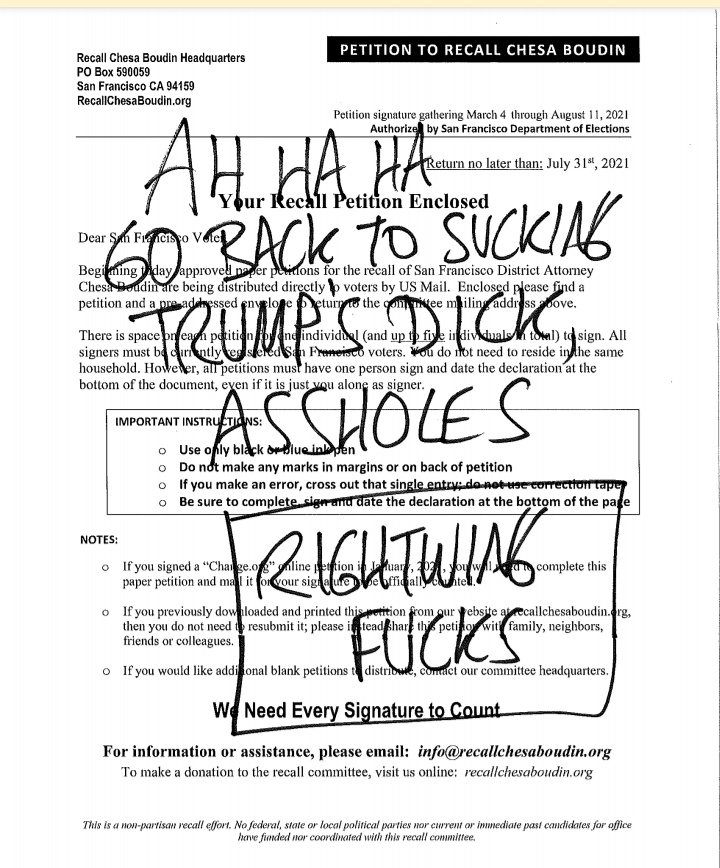 Recall Chesa Boudin Headquarters
PO Box 590059
San Francisco CA 94159
RecallChesaBoudin.org
PETITION TO RECALL CHESA BOUDIN
Petition signature gathering March 4 through August 11, 2021
Authorized by San Francisco Department of Elections
Return no later than: July 31st, 2021
AH HA HA
Your Recall Petition Enclosed
Dear San Francisco Voter
GO BACK TO SUCKING
Beginning today approved paper petitions for the recall of San Francisco District Attorney
Chesa Boudin are being distributed directly to voters by US Mail. Enclosed please find a
petition and a pre-addressed envelope to return to the committee mailing address above.
TRUMP'S DICK
There is space on each petition for one individual (and up to five individuals in total) to sign. All
signers must be currently registered San Francisco voters. You do not need to reside in the same
household. However, all petitions must have one person sign and date the declaration at the
bottom of the document, even if it is just you alone as signer.
ASSHOLES
IMPORTANT INSTRUCTIONS:
o Use only black or blue ink pen
o Do not make any marks in margins or on back of petition
o If you make an error, cross out that single entry; do not use correction tape
o Be sure to complete, sign and date the declaration at the bottom of the page
RIGHTWING
FUCKS
NOTES:
o If you signed a “Change.org” online petition in January, 2021, you will need to complete this
paper petition and mail it for your signature to be officially counted.
o If you previously downloaded and printed this petition from our website at recallchesaboudin.org,
then you do not need to resubmit it; please instead share this petition with family, neighbors,
friends or colleagues.
o If you would like additional blank petitions to distribute, contact our committee headquarters.
We Need Every Signature to Count
For information or assistance, please email: info@recallchesaboudin.org
To make a donation to the recall committee, visit us online: recallchesaboudin.org
This is a non-partisan recall effort. No federal, state or local political parties nor current or immediate past candidates for office
have funded nor coordinated with this recall committee.